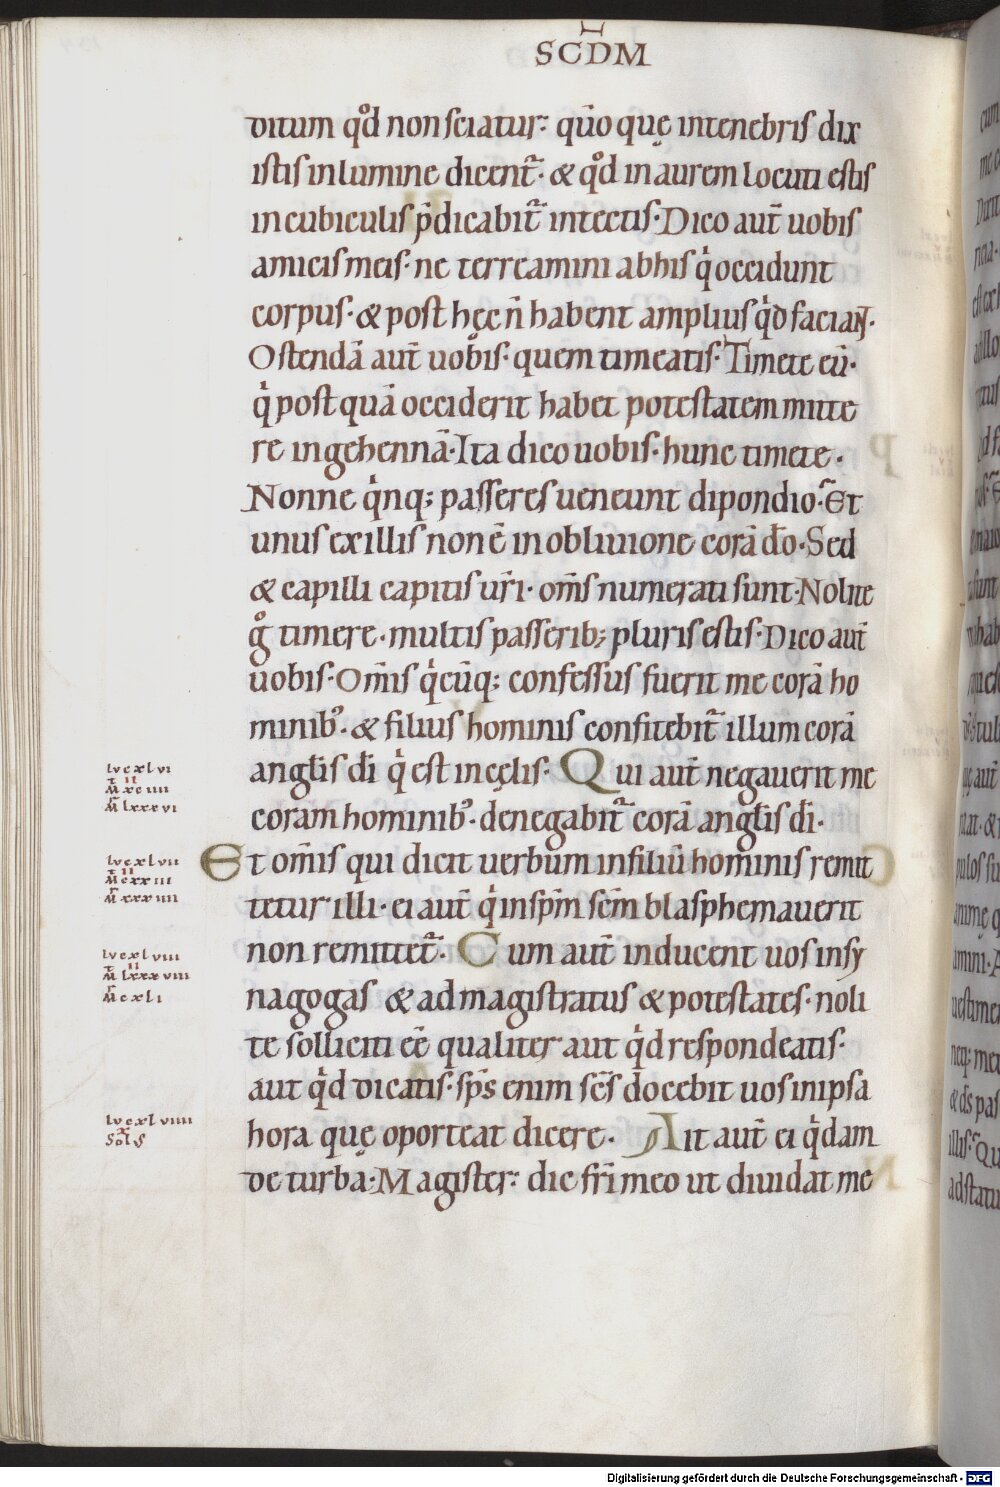 SCDM
ditum qd̊ non sciatur: qūo quę in tenebris dix
istis in lumine dicent᷑· & qd̊ in aurem locuti estis
in cubiculis p̄dicabit᷑ in tectis· Dico aut̄ uobis
amicis meis· ne terreamini ab his qͥ occidunt
corpus· & post hęc n̄ habent amplius qͥd faciant·
Ostendā aut̄ uobis· quem timeatis· Timete eū·
qͥ post quā occiderit habet potestatem mitte
re in gehennā· Ita dico uobis· hunc timete·
Nonne qͥnq; passeres ueneunt dipondio· Et
unus ex illis non ē in obliuione corā dō· Sed
& capilli capitis ur̄i· om̄s numerati sunt· Nolite
g̊ timere· multis passerib; pluris estis· Dico aut̄
uobis· Om̄is qͥcūq; confessus fuerit me corā ho
minibꝰ· & filius hominis confitebit᷑ illum corā
angl̄is dī qͥ est in cęlis· Qui aut̄ negauerit me
coram hominibꝰ· denegabit᷑ corā angl̄is dī·
Et om̄is qui dicit uerbum in filiū hominis remit
tetur illi· ei aut̄ qͥ in sp̄m sc̄m blasphemauerit
non remittet᷑· Cum aut̄ inducent uos in sy
nagogas & ad magistratus & potestates· noli
te solliciti eē qualiter aut qͥd respondeatis·
aut qͥd dicatis· sp̄s enim sc̄s docebit uos in ipsa
hora quę oporteat dicere· Ait aut̄ ei qͥdam
de turba· Magister: dic fr̄i meo ut diuidat me
lu cxlvi
mt xciiii
mr lxxxvi
lu cxlvii
mt cxxiii
mr xxxiiii
lu cxlviii
mt lxxxviii
mr cxli
lu cxlviiii
Solus
Digitalisierung gefördert durch die Deutsche Forschungsgemeinschaft - DFG